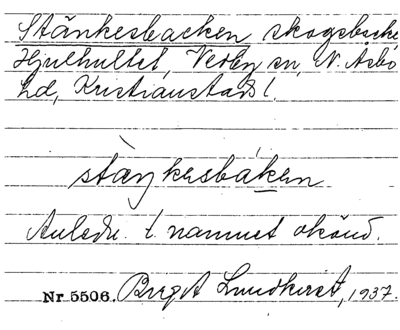 Stänkesbacken, skogsbacke
Hjulhultet, Verby sn, N. Åsbo
hd, Kristianstads l.
stäŋkesbáken
Anledn. t. namnet okänd.
Nr 5506. Birgit Lundkvist, 1937.